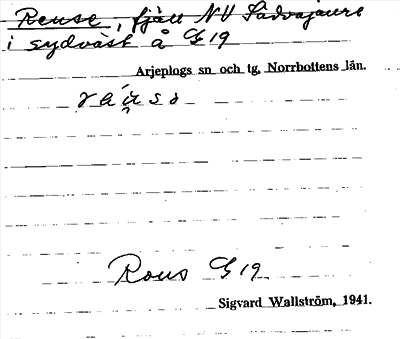 Reuse, fjäll NV Sädvajaure
i sydväst å G 19
Arjeplogs sn och tg, Norrbottens län.
Rous G 19
Sigvard Wallström, 1941.